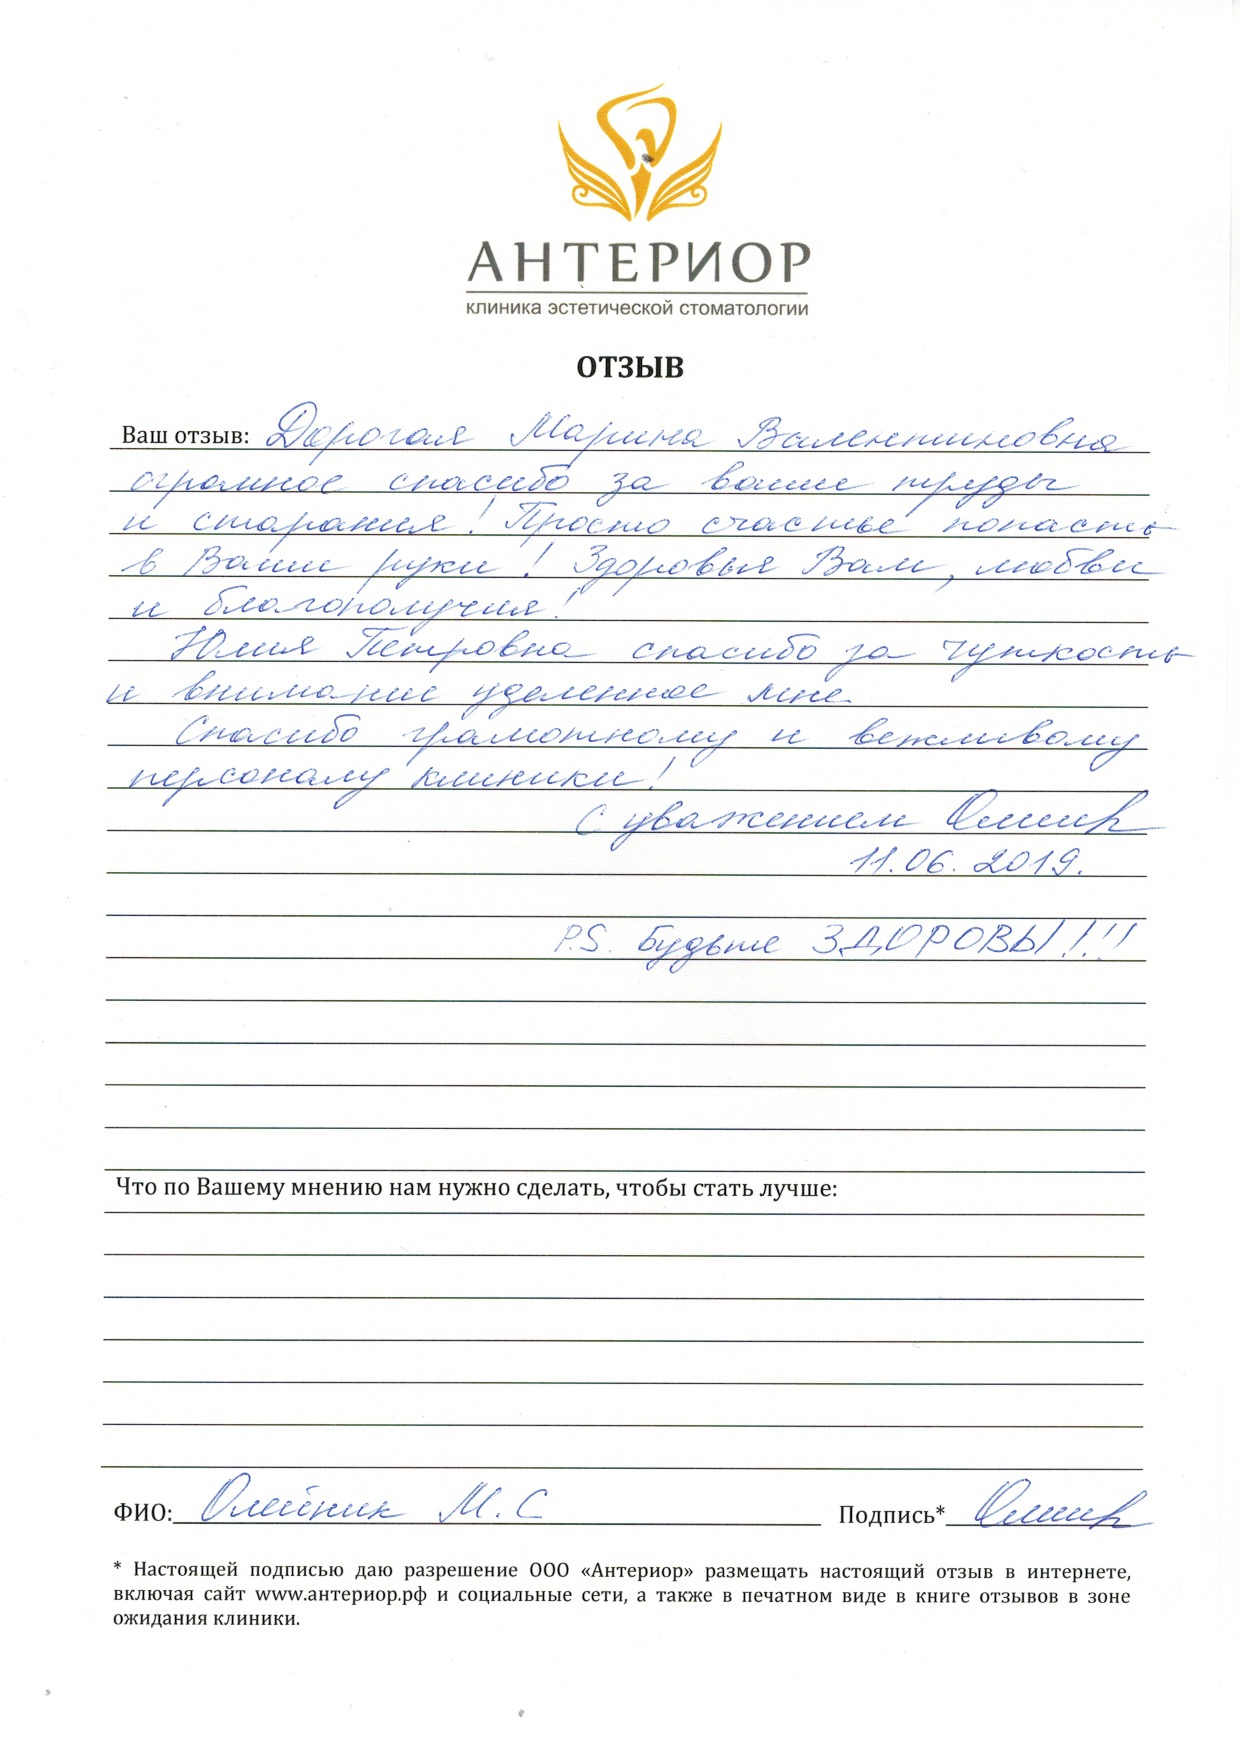 АНТЕРИОР
клиника эстетической стоматологии
ОТЗЫВ
Ваш отзыв: Дорогая Марина Валентиновна
огромное спасибо за ваши труды
и старания! Просто счастье попасть
в Ваши руки! Здоровья Вам, любви
и благополучия!
Юлия Петровна спасибо за чуткость
и внимание уделенное мне.
Спасибо грамотному и вежливому
персоналу клиники!
С уважением
11.06.2019.
P.S. Будьте ЗДОРОВЫ!!!!
Что по Вашему мнению нам нужно сделать, чтобы стать лучше:
ФИО: Олейник М.С Подпись*
* Настоящей подписью даю разрешение ООО «Антериор» размещать настоящий отзыв в интернете,
включая сайт www.антериор.рф и социальные сети, а также в печатном виде в книге отзывов в зоне
ожидания клиники.